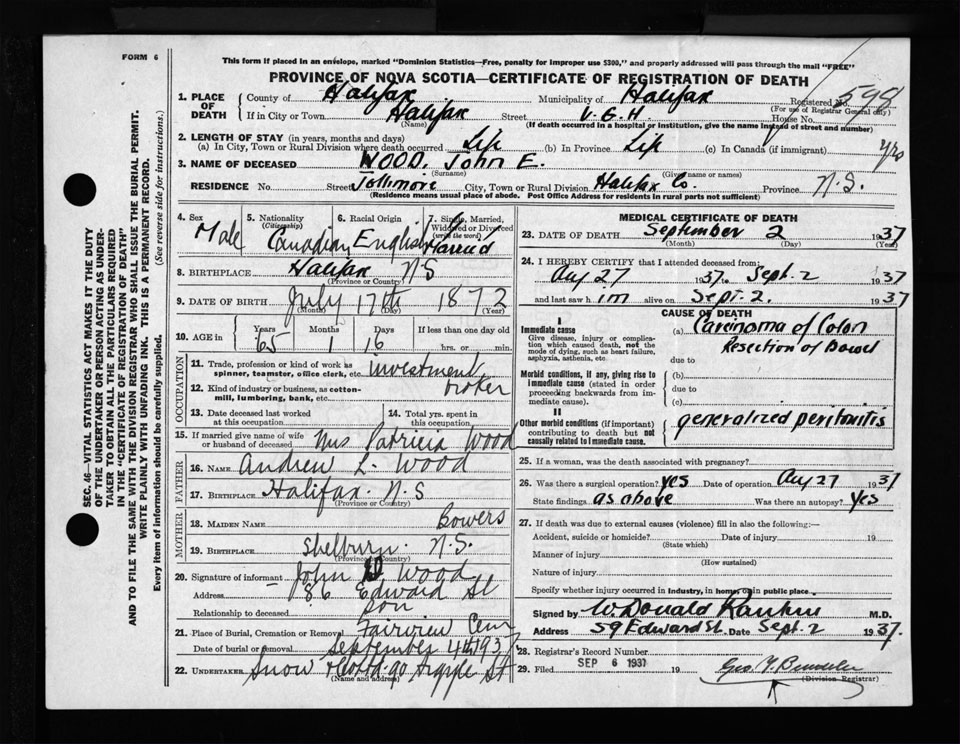 FORM 6
This form if placed in an envelope, marked "Dominion Statistics—Free, penalty for improper use $300," and properly addressed will pass through the mail "FREE"
PROVINCE OF NOVA SCOTIA—CERTIFICATE OF REGISTRATION OF DEATH
1. PLACE OF DEATH County of Halifax Municipality of Halifax Registered No. 598
(For use of Registrar General only)
If in City or Town Halifax Street V.G.H. House No.
(Name) (If death occurred in a hospital or institution, give the name instead of street and number)
2. LENGTH OF STAY (in years, months and days)
(a) In City, Town or Rural Division where death occurred Life (b) In Province Life (c) In Canada (if immigrant) yrs
3. NAME OF DECEASED WOOD, John E.
(Surname) (Given name or names)
RESIDENCE No. Street Jollimore City, Town or Rural Division Halifax Co. Province N.S.
(Residence means usual place of abode. Post Office Address for residents in rural parts not sufficient)
SEC. 46—VITAL STATISTICS ACT MAKES IT THE DUTY
OF THE UNDERTAKER OR PERSON ACTING AS UNDER-
TAKER TO OBTAIN ALL THE PARTICULARS REQUIRED
IN THE "CERTIFICATE OF REGISTRATION OF DEATH"
AND TO FILE THE SAME WITH THE DIVISION REGISTRAR WHO SHALL ISSUE THE BURIAL PERMIT.
WRITE PLAINLY WITH UNFADING INK. THIS IS A PERMANENT RECORD.
Every item of information should be carefully supplied. (See reverse side for instructions.)
4. Sex 5. Nationality (Citizenship) 6. Racial Origin 7. Single, Married, Widowed or Divorced (write the word)
Male Canadian English Married
8. BIRTHPLACE Halifax N S
(Province or Country)
9. DATE OF BIRTH July 17th 1872
(Month) (Day) (Year)
10. AGE in Years Months Days If less than one day old
65 1 16 hrs. or min.
OCCUPATION
11. Trade, profession or kind of work as spinner, teamster, office clerk, etc. investment
12. Kind of industry or business, as cotton-mill, lumbering, bank, etc. broker
13. Date deceased last worked at this occupation 14. Total yrs. spent in this occupation
15. If married give name of wife or husband of deceased Mrs Patricia Wood
FATHER
16. NAME Andrew L. Wood
17. BIRTHPLACE Halifax. N.S
(Province or Country)
MOTHER
18. MAIDEN NAME Bowers
19. BIRTHPLACE Shelburn. N.S.
(Province or Country)
20. Signature of informant John D Wood
Address 86 Edward St
Relationship to deceased Son
21. Place of Burial, Cremation or Removal Fairview Cem
Date of burial or removal September 4th 1937
22. UNDERTAKER Snow & Co Ltd. 90 Argyle St
(Name and address)
MEDICAL CERTIFICATE OF DEATH
23. DATE OF DEATH September 2 1937
(Month) (Day) (Year)
24. I HEREBY CERTIFY that I attended deceased from:
Aug 27 1937 to Sept. 2 1937
and last saw him alive on Sept. 2. 1937
CAUSE OF DEATH
I
Immediate cause (a) Carcinoma of Colon
Give disease, injury or complication which caused death, not the mode of dying, such as heart failure, asphyxia, asthenia, etc. Resection of Bowel
due to
Morbid conditions, if any, giving rise to immediate cause (stated in order proceeding backwards from immediate cause). (b)
due to
(c)
II
Other morbid conditions (if important) contributing to death but not causally related to immediate cause. generalized peritonitis
25. If a woman, was the death associated with pregnancy?
26. Was there a surgical operation? yes Date of operation Aug 27 1937
State findings as above Was there an autopsy? Yes
27. If death was due to external causes (violence) fill in also the following:—
Accident, suicide or homicide? Date of injury 19
(State which)
Manner of injury
(How sustained)
Nature of injury
Specify whether injury occurred in industry, in home, or in public place
Signed by W. Donald Rankin M.D.
Address 59 Edward St. Date Sept. 2 1937.
28. Registrar's Record Number
29. Filed SEP 6 1937 19 Geo. Y.
(Division Registrar)